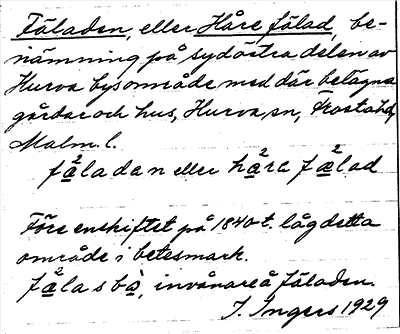 Fäladen, eller Håre fälad, be-
nämning på sydöstra delen av
Hurva bysområde med där belägna
gårdar och hus, Hurva sn, Frosta hd,
Malm. l.
fäladan eller håra fälad
Före enskiftet på 1840-t. låg detta
område i betesmark.
fälasbo, invånare å fäladen.
I. Ingers 1929